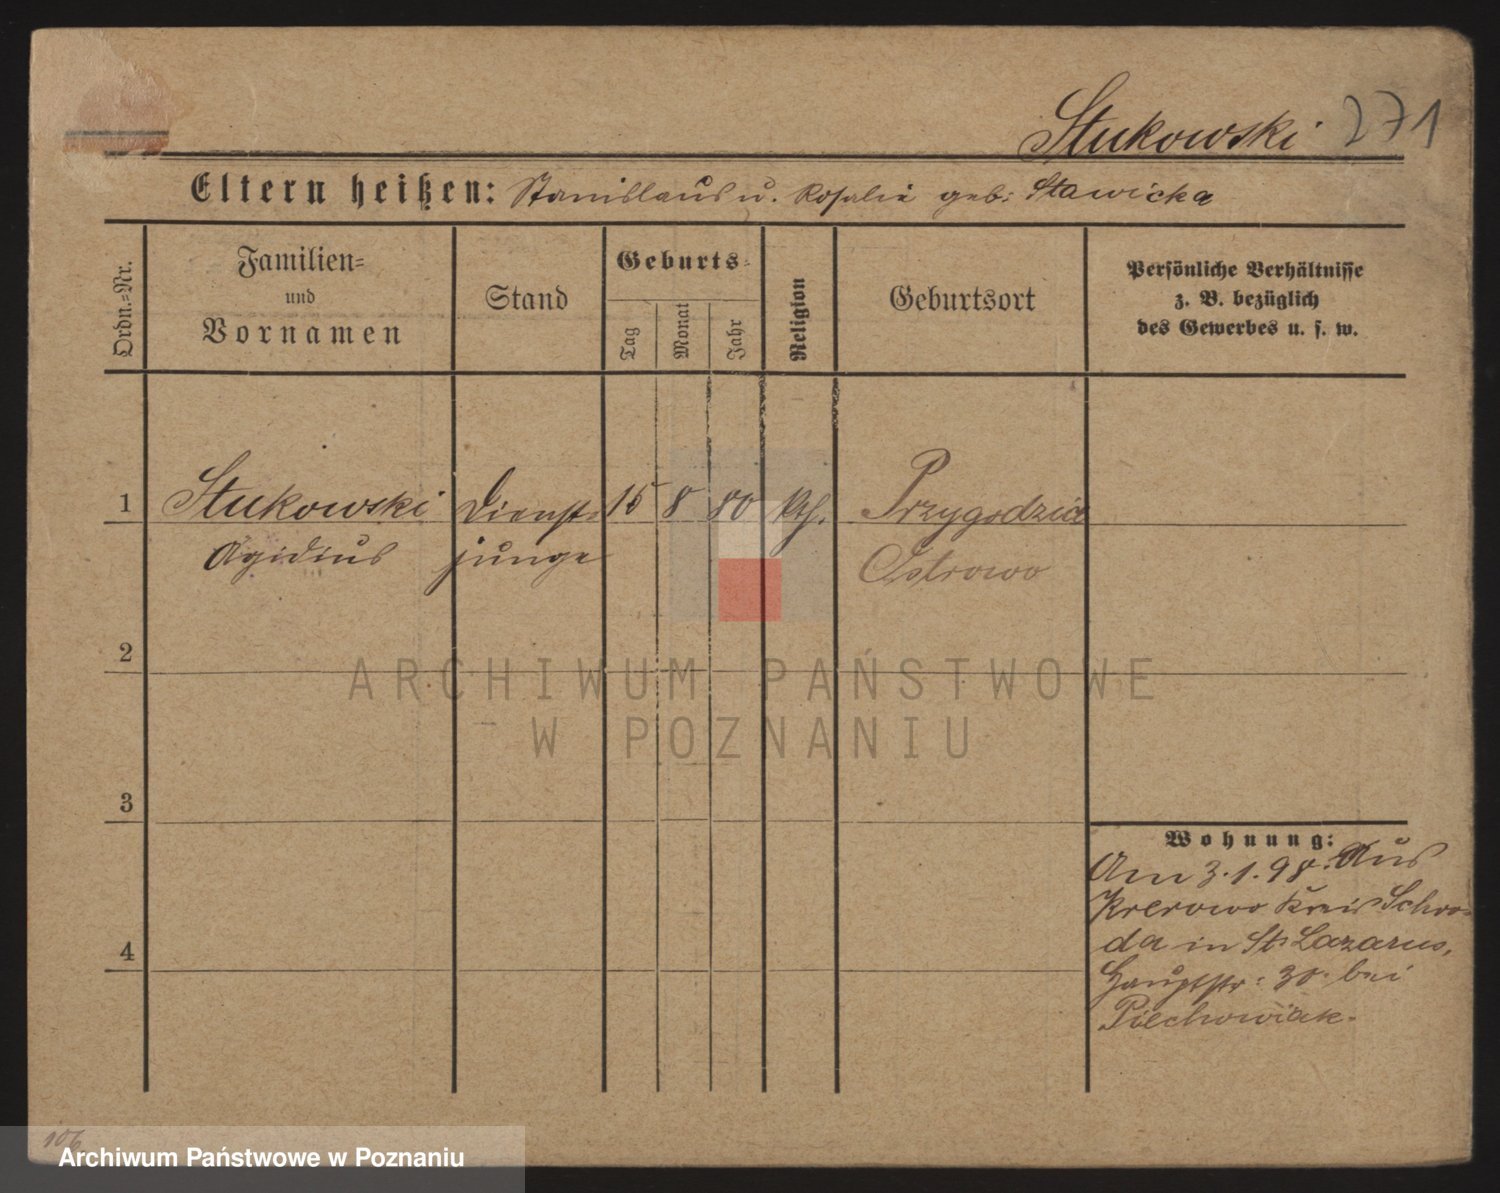 Stukowski 271
Eltern heißen: Stanislaus u. Rosalie geb: Stawicka
Ordn.=Nr.
Familien=
und
Vornamen
Stand
Geburts=
Tag
Monat
Jahr
Religion
Geburtsort
Persönliche Verhältnisse
z. B. bezüglich
des Gewerbes u. s. w.
1 Stukowski Dienst= 15 8 80 kth. Przygodzice
Agidius junge Ostrowo
2
ARCHIWUM PAŃSTWOWE
W POZNANIU
3
Wohnung:
Am 3.1.98. Aus
Krerowo Kreis Schro=
da in St. Lazarus,
4
Hauptstr: 30. bei
Piechowiak.
106
Archiwum Państwowe w Poznaniu